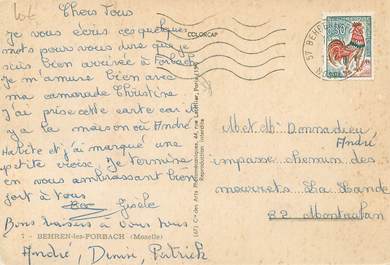 Lot
Chers Tous
Je vous écris ces quelques
mots pour vous dire que je
suis bien arrivée à Forbach
Je m'amuse bien avec
ma camarade Christine
J'ai prise cette carte car il
y a la maison où André
Habite et j'ai marqué une
petite croix. Je termine
en vous embrassant bien
fort à tous
Gisèle
Bons baisers à vous tous
7 - BEHREN-les-FORBACH (Moselle)
André, Denise, Patrick
COLORCAP
Reproduction interdite
57 BEHREN
0,30
Met Mme Donnadieu
André
impasse chemin des
mourrets La Lande
82 Montauban